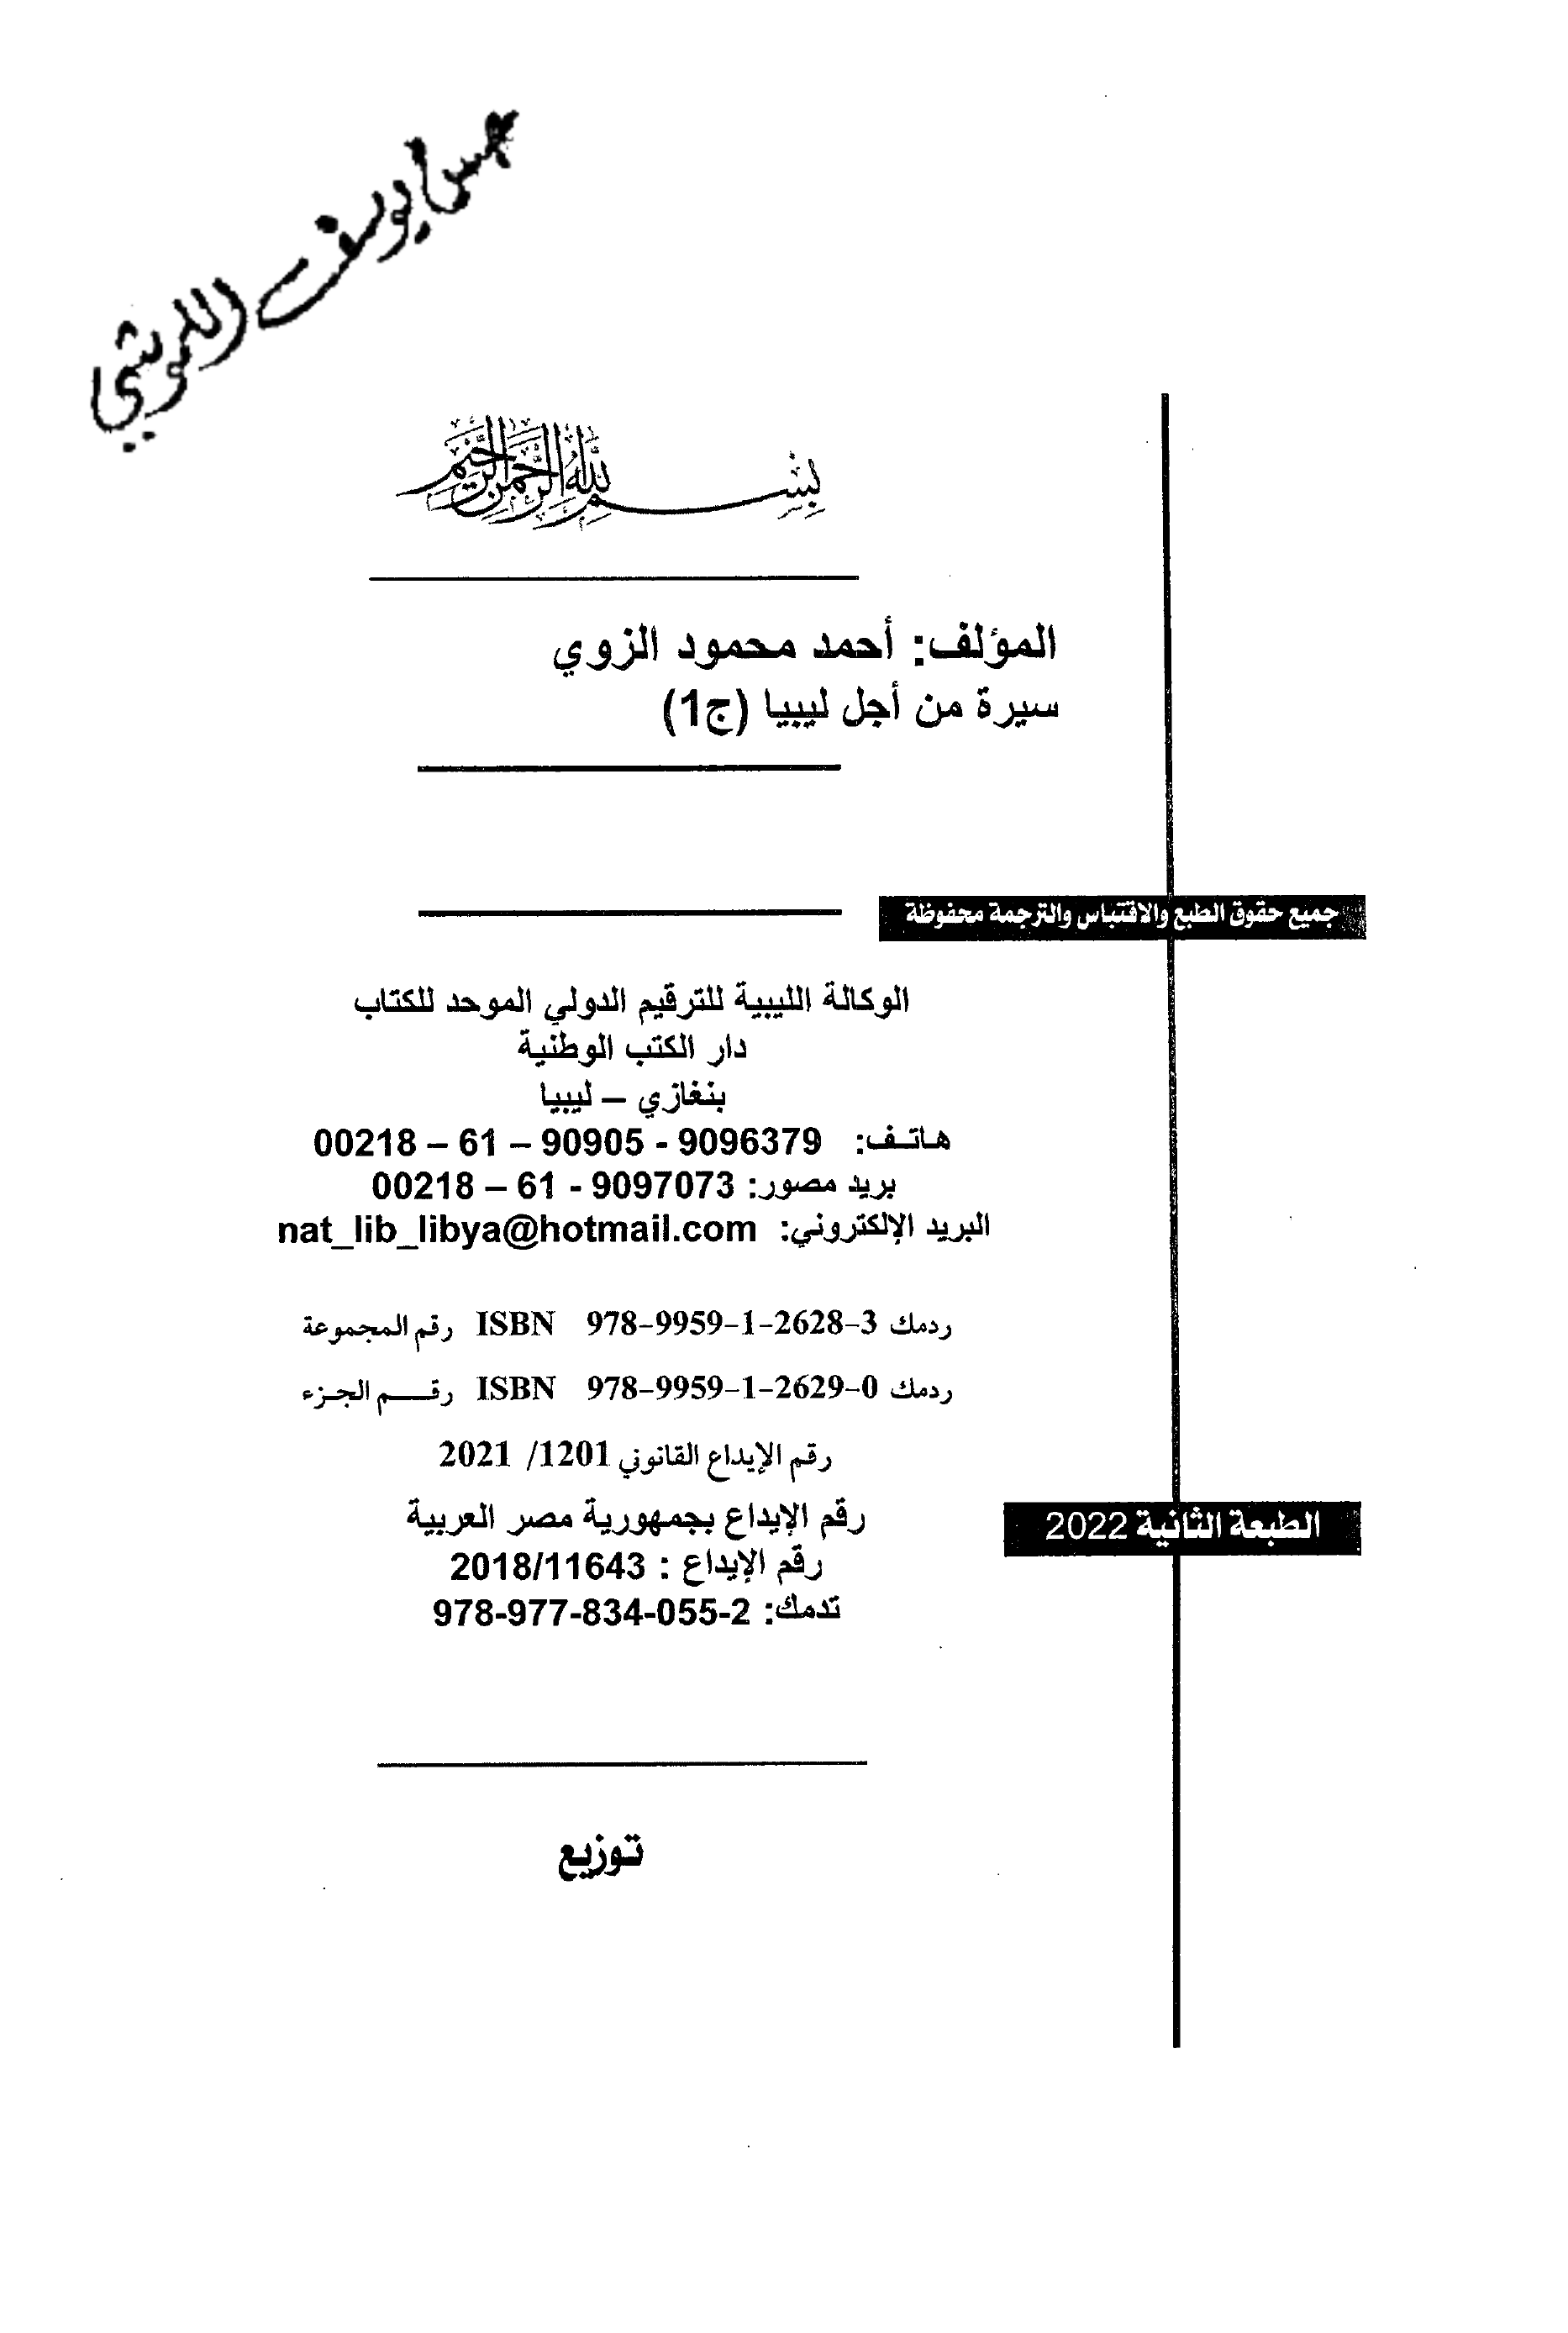 يوسف اللموشي
بسم الله الرحمن الرحيم
المؤلف: أحمد محمود الزوي
سيرة من أجل ليبيا (ج1)
جميع حقوق الطبع والاقتباس والترجمة محفوظة
الوكالة الليبية للترقيم الدولي الموحد للكتاب
دار الكتب الوطنية
بنغازي – ليبيا
هاتف: 9096379 - 90905 – 61 – 00218
بريد مصور: 9097073 - 61 – 00218
البريد الإلكتروني: nat_lib_libya@hotmail.com
ردمك ISBN 978-9959-1-2628-3 رقم المجموعة
ردمك ISBN 978-9959-1-2629-0 رقم الجزء
رقم الإيداع القانوني 1201/ 2021
رقم الإيداع بجمهورية مصر العربية
رقم الإيداع : 2018/11643
تدمك: 978-977-834-055-2
الطبعة الثانية 2022
توزيع